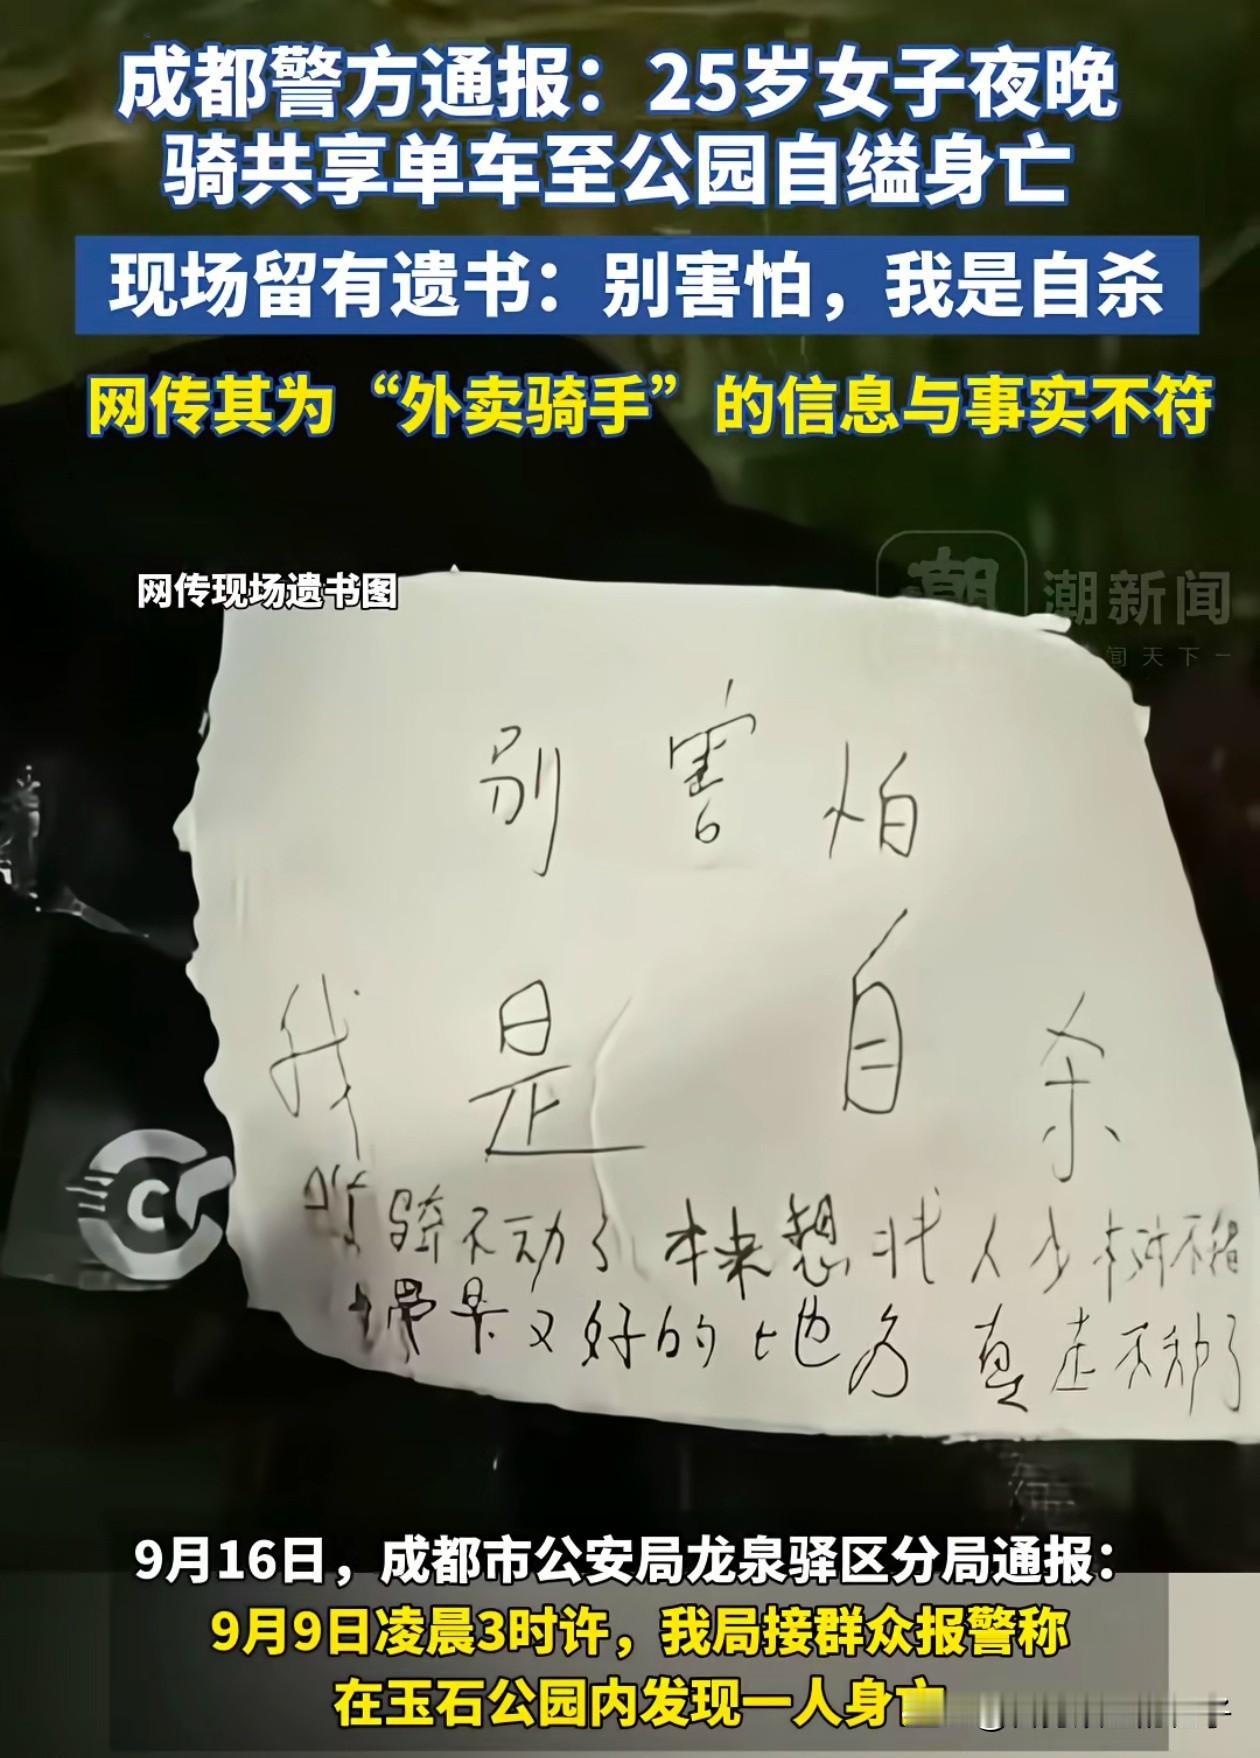 成都警方通报：25岁女子夜晚
骑共享单车至公园自缢身亡
现场留有遗书：别害怕，我是自杀
网传其为“外卖骑手”的信息与事实不符
潮新闻
闻天下
网传现场遗书图
别害怕
我是自杀
骑不动了 本来想找人少 树不错
果又好的地方 真走不动了
9月16日，成都市公安局龙泉驿区分局通报：
9月9日凌晨3时许，我局接群众报警称
在玉石公园内发现一人身亡